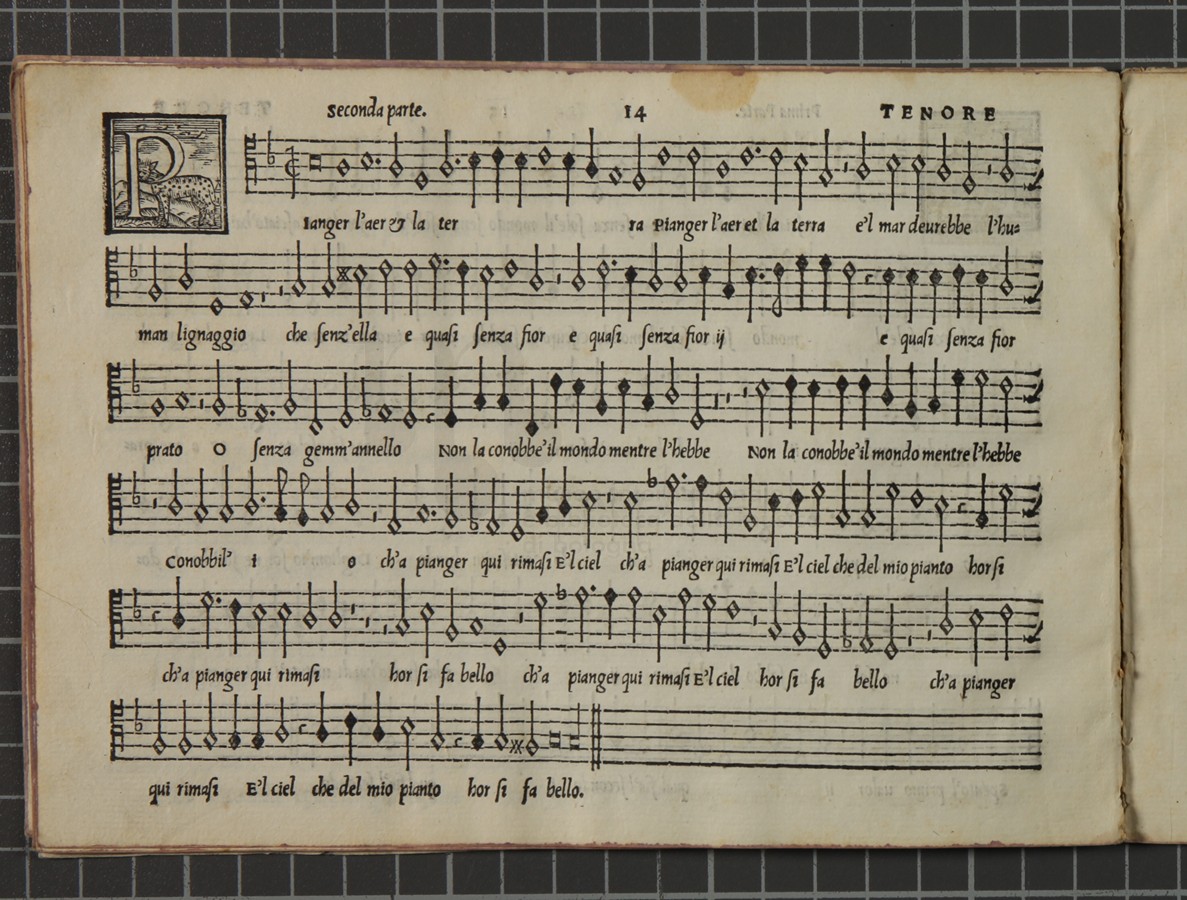 Seconda parte. 14 TENORE
PIanger l'aer & la ter ra Pianger l'aer et la terra e'l mar deurebbe l'hu=
man lignaggio che senz'ella e quasi senza fior e quasi senza fior ij e quasi senza fior
prato O senza gemm'annello Non la conobbe'il mondo mentre l'hebbe Non la conobbe'il mondo mentre l'hebbe
Conobbil' i o ch'a pianger qui rimasi E'l ciel ch'a pianger qui rimasi E'l ciel che del mio pianto hor si
ch'a pianger qui rimasi hor si fa bello ch'a pianger qui rimasi E'l ciel hor si fa bello ch'a pianger
qui rimasi E'l ciel che del mio pianto hor si fa bello.